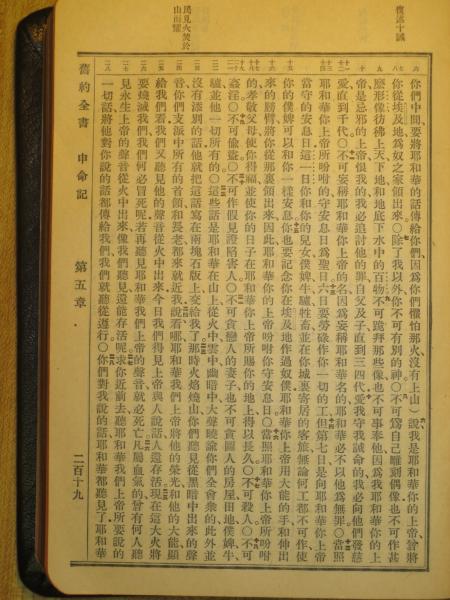 復述十誡
民見火焚於
山而懼
你們中間要將耶和華的話傳給你們因爲你們懼怕那火沒有上山）說我是耶和華你的上帝曾將
你從埃及地爲奴之家領出來○除了我以外你不可有別的神○不可爲自己雕刻偶像也不可作甚
麽形像彷彿上天下地和地底下水中的百物不可跪拜那些像也不可事奉他因爲我耶和華你的上
帝是忌邪的上帝恨我的我必追討他的罪自父及子直到三四代愛我守我誡命的我必向他們發慈
愛直到千代○不可妄稱耶和華你上帝的名因爲妄稱耶和華名的耶和華必不以他爲無罪○當照
耶和華你上帝所吩咐的守安息日爲聖日六日要勞碌作你一切的工但第七日是向耶和華你上帝
當守的安息日這一日你和你的兒女僕婢牛驢牲畜並在你城裏寄居的客旅無論何工都不可作使
你的僕婢可以和你一樣安息你也要記念你在埃及地作過奴僕耶和華你上帝用大能的手和伸出
來的膀臂將你從那裏領出來因此耶和華你的上帝吩咐你守安息日○當照耶和華你上帝所吩咐
的孝敬父母使你得福並使你的日子在耶和華你上帝所賜你的地上得以長久○不可殺人○不可
姦淫○不可偷盜○不可作假見證陷害人○不可貪戀人的妻子也不可貪圖人的房屋田地僕婢牛
驢並他一切所有的○這些話是耶和華在山上從火中雲中幽暗中大聲曉諭你們全會衆的此外並
沒有添別的話他就把這話寫在兩塊石版上交給我了那時火焰燒山你們聽見從黑暗中出來的聲
音你們支派中所有的首領和長老都來就近我說看哪耶和華我們上帝將他的榮光和他的大能顯
給我們看我們又聽見他的聲音從火中出來今日我們得見上帝與人說話人還存活現在這大火將
要燒滅我們我們何必冒死呢若再聽見耶和華我們上帝的聲音就必死亡凡屬血氣的曾有何人聽
見永生上帝的聲音從火中出來像我們聽見還能存活呢求你近前去聽耶和華我們上帝所要說的
一切話將他對你說的話都傳給我們我們就聽從遵行○你們對我說的話耶和華都聽見了耶和華
舊約全書 申命記 第五章 二百十九